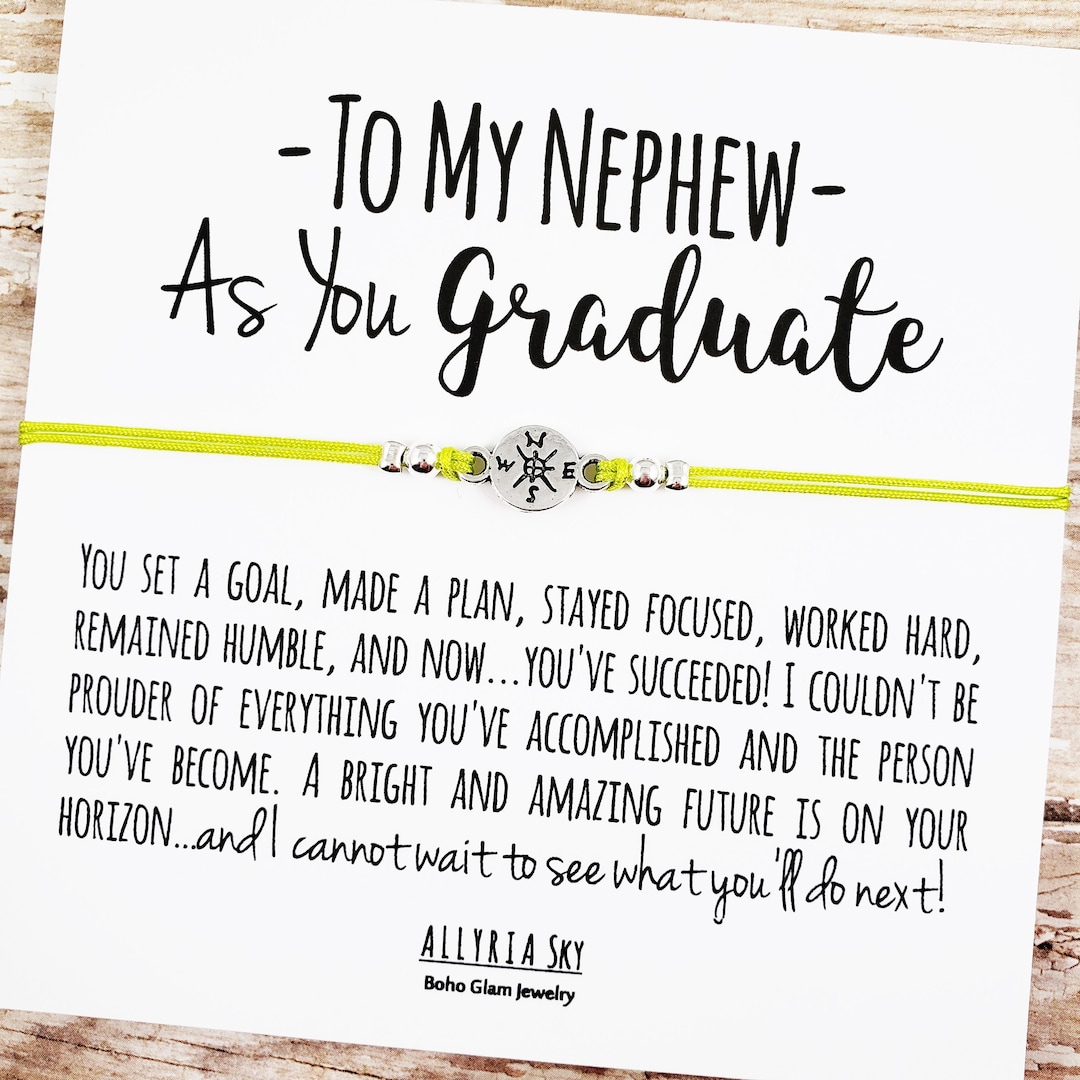 - To My Nephew -
As You Graduate
N
W E
S
You set a goal, made a plan, stayed focused, worked hard,
remained humble, and now...you've succeeded! I couldn't be
prouder of everything you've accomplished and the person
you've become. A bright and amazing future is on your
horizon...and I cannot wait to see what you'll do next!
ALLYRIA SKY
Boho Glam Jewelry